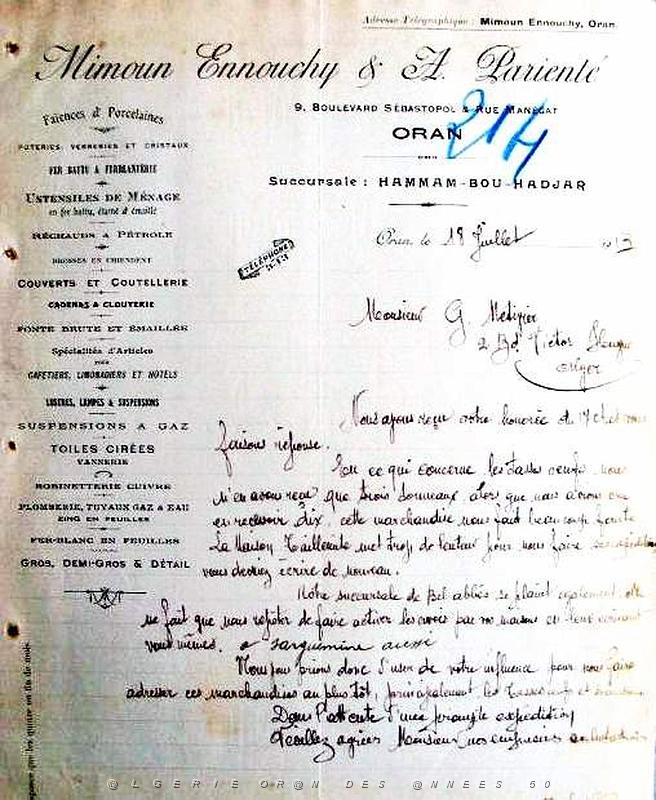 Adresse Télégraphique : Mimoun Ennouchy, Oran.
Mimoun Ennouchy & A. Parienté
9, BOULEVARD SÉBASTOPOL & RUE MANÉGAT
ORAN
214
Succursale : HAMMAM-BOU-HADJAR
Faïences & Porcelaines
POTERIES VERRERIES ET CRISTAUX
FER BATTU & FERBLANTERIE
USTENSILES DE MÉNAGE
en fer battu, étamé & émaillé
RÉCHAUDS A PÉTROLE
BROSSES EN CHIENDENT
COUVERTS ET COUTELLERIE
CADENAS & CLOUTERIE
FONTE BRUTE ET ÉMAILLÉE
Spécialités d'Articles
POUR
CAFETIERS, LIMONADIERS ET HÔTELS
LUSTRES, LAMPES & SUSPENSIONS
SUSPENSIONS A GAZ
TOILES CIRÉES
VANNERIE
ROBINETTERIE CUIVRE
PLOMBERIE, TUYAUX GAZ & EAU
ZINC EN FEUILLES
FER-BLANC EN FEUILLES
GROS, DEMI-GROS & DÉTAIL
TÉLÉPHONE
Oran, le 18 Juillet
Monsieur G
2 Bd Victor
Alger
Nous avons reçu votre honorée du 17 et
faisons réponse.
En ce qui concerne les tasses nous
n'en avons reçu que trois alors que nous avons
en recevoir dix, cette marchandise nous fait beaucoup faute
La Maison met trop de lenteur pour nous faire
vous devriez écrire de nouveau.
Notre succursale de Bel abbès se plaint également, elle
ne fait que nous répéter de faire activer les envois par vos maisons en leur écrivant
vous mêmes. a Sarguemine aussi
Nous vous prions donc d'user de votre influence pour nous faire
adresser ces marchandises au plus tôt, principalement les
Dans l'attente d'une prompte expédition
Veuillez agréer Monsieur nos
@LGERIE OR@N DES @NNEES 60